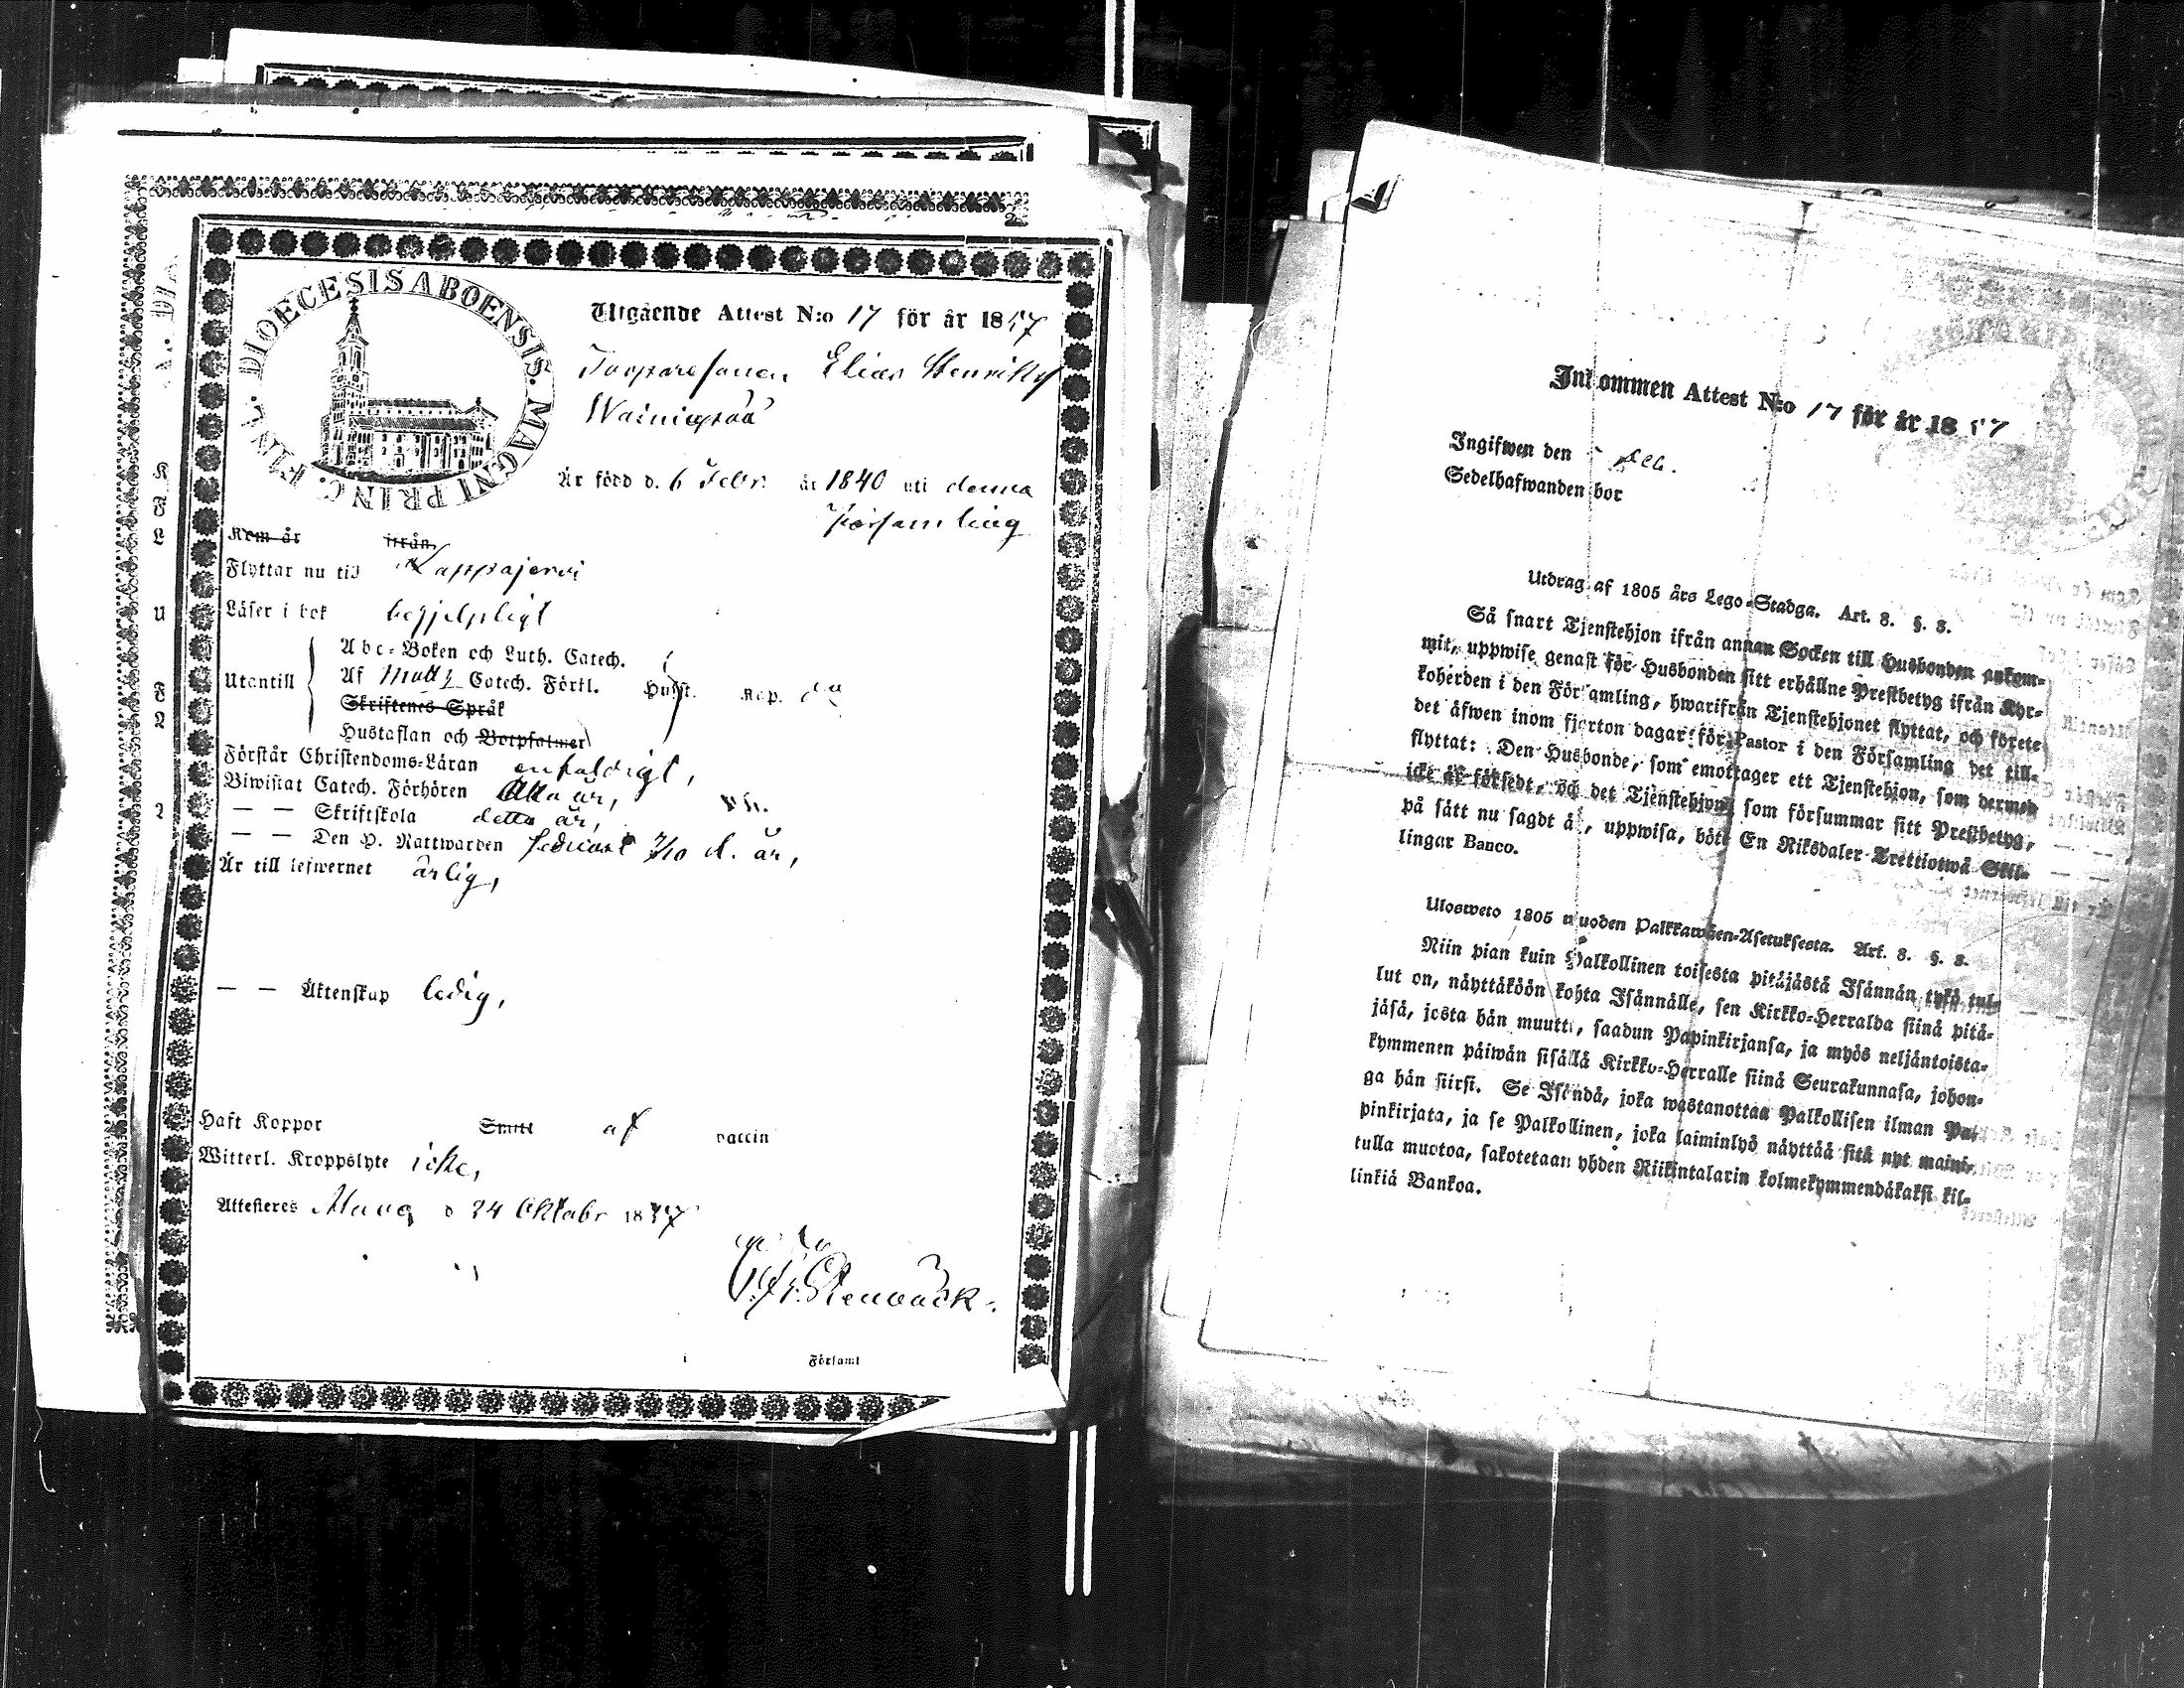 DIOECESIS ABOENSIS. MAGNI PRINC. FINL.
Utgående Attest N:o 17 för år 1857
Elias Henriks
Wainiopää
Är född d. 6 Febr. år 1840 uti denna
Församling
Kom år ifrån
Flyttar nu till Lappajervi
Läser i bok hjelpligt
Utantill
Abc-Boken och Luth. Catech.
Af Catech. Förkl. Hufst. Kap.
Skriftenes Språk
Hustaflan och Botpsalmer
Förstår Christendoms-Läran enfaldigt,
Biwistat Catech. Förhören Alla år,
— — Skriftskola detta år,
— — Den H. Nattwarden sednast 7/10 d. år,
Är till lefwernet ärlig,
— — Äktenskap ledig,
Haft Koppor Smitt af vaccin
Witterl. Kroppslyte icke,
Attesteras d 24 Oktobr 1857
Församl
Inkommen Attest N:o 17 för år 1857
Ingifwen den
Sedelhafwanden bor
Utdrag af 1805 års Lego-Stadga. Art. 8. §. 8.
Så snart Tjenstehjon ifrån annan Socken till Husbonden ankom-
mit, uppwise genast för Husbonden sitt erhållne Prestbetyg ifrån Kyr-
koherden i den Församling, hwarifrån Tjenstehjonet flyttat, och förete
det äfwen inom fjorton dagar för Pastor i den Församling det till-
flyttat: Den Husbonde, som emottager ett Tjenstehjon, som dermed
icke är försedt, och det Tjenstehjon, som försummar sitt Prestbetyg,
på sätt nu sagdt är, uppwisa, böte En Riksdaler Trettiotwå Skil-
lingar Banco.
Ulosweto 1805 wuoden Palkkawäen-Asetuksesta. Art. 8. §. 8.
Niin pian kuin Palkollinen toisesta pitäjästä Isännän tykö tul-
lut on, näyttäköön kohta Isännälle, sen Kirkko-Herralda siinä pitä-
jäsä, josta hän muutti, saadun Papinkirjansa, ja myös neljäntoista-
kymmenen päiwän sisällä Kirkko-Herralle siinä Seurakunnasa, johon-
ga hän siirsi. Se Isändä, joka wastanottaa Palkollisen ilman Pa-
pinkirjata, ja se Palkollinen, joka laiminlyö näyttää sitä nyt maini-
tulla muotoa, sakotetaan yhden Riikintalarin kolmekymmendäkaksi kil-
linkiä Bankoa.